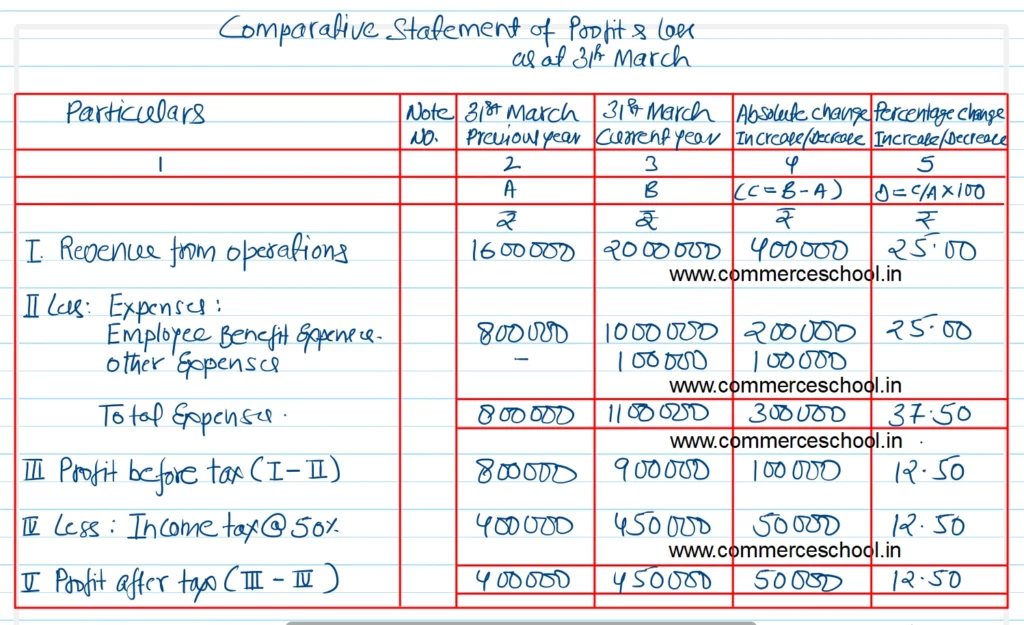 Comparative Statement of Profit & Loss
as at 31st March
Particulars Note No. 31st March Previous year 31st March Current year Absolute change Increase/Decrease Percentage change Increase/Decrease
1 2 3 4 5
A B (C=B-A) D=C/A×100
₹ ₹ ₹ ₹
I. Revenue from operations 1600000 2000000 400000 25.00
www.commerceschool.in
II Less: Expenses:
Employee Benefit Expenses. 800000 1000000 200000 25.00
Other Expenses - 100000 100000
www.commerceschool.in
Total Expenses. 800000 1100000 300000 37.50
www.commerceschool.in
III Profit before tax (I-II) 800000 900000 100000 12.50
IV Less: Income tax@50% 400000 450000 50000 12.50
www.commerceschool.in
V Profit after tax (III-IV) 400000 450000 50000 12.50